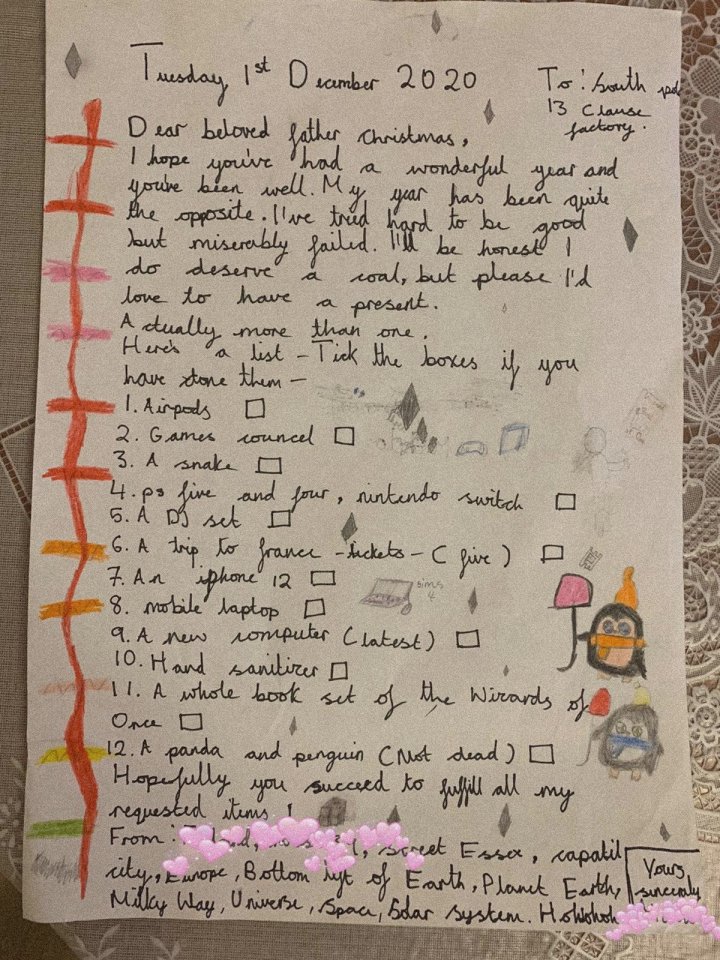 Tuesday 1st December 2020
To: South pole
13 Clause
factory.
Dear beloved father christmas,
I hope you've had a wonderful year and
you've been well. My year has been quite
the opposite. I've tried hard to be good
but miserably failed. I'll be honest I
do deserve a coal, but please I'd
love to have a present.
Actually more than one.
Here's a list - Tick the boxes if you
have done them -
1. Airpods
2. Games councel
3. A snake
4. ps five and four, nintendo switch
5. A DJ set
6. A trip to france - tickets - (five)
7. An iphone 12
sims
4
8. mobile laptop
9. A new computer (latest)
10. Hand sanitizer
11. A whole book set of the Wizards of
Once
12. A panda and penguin (Not dead)
Hopefully you succeed to fulfill all my
requested items!
From: street Essex, capatil
city, Europe, Bottom of Earth, Planet Earth,
Milky Way, Universe, Space, Solar system. Hohohoh
Yours
sincerely